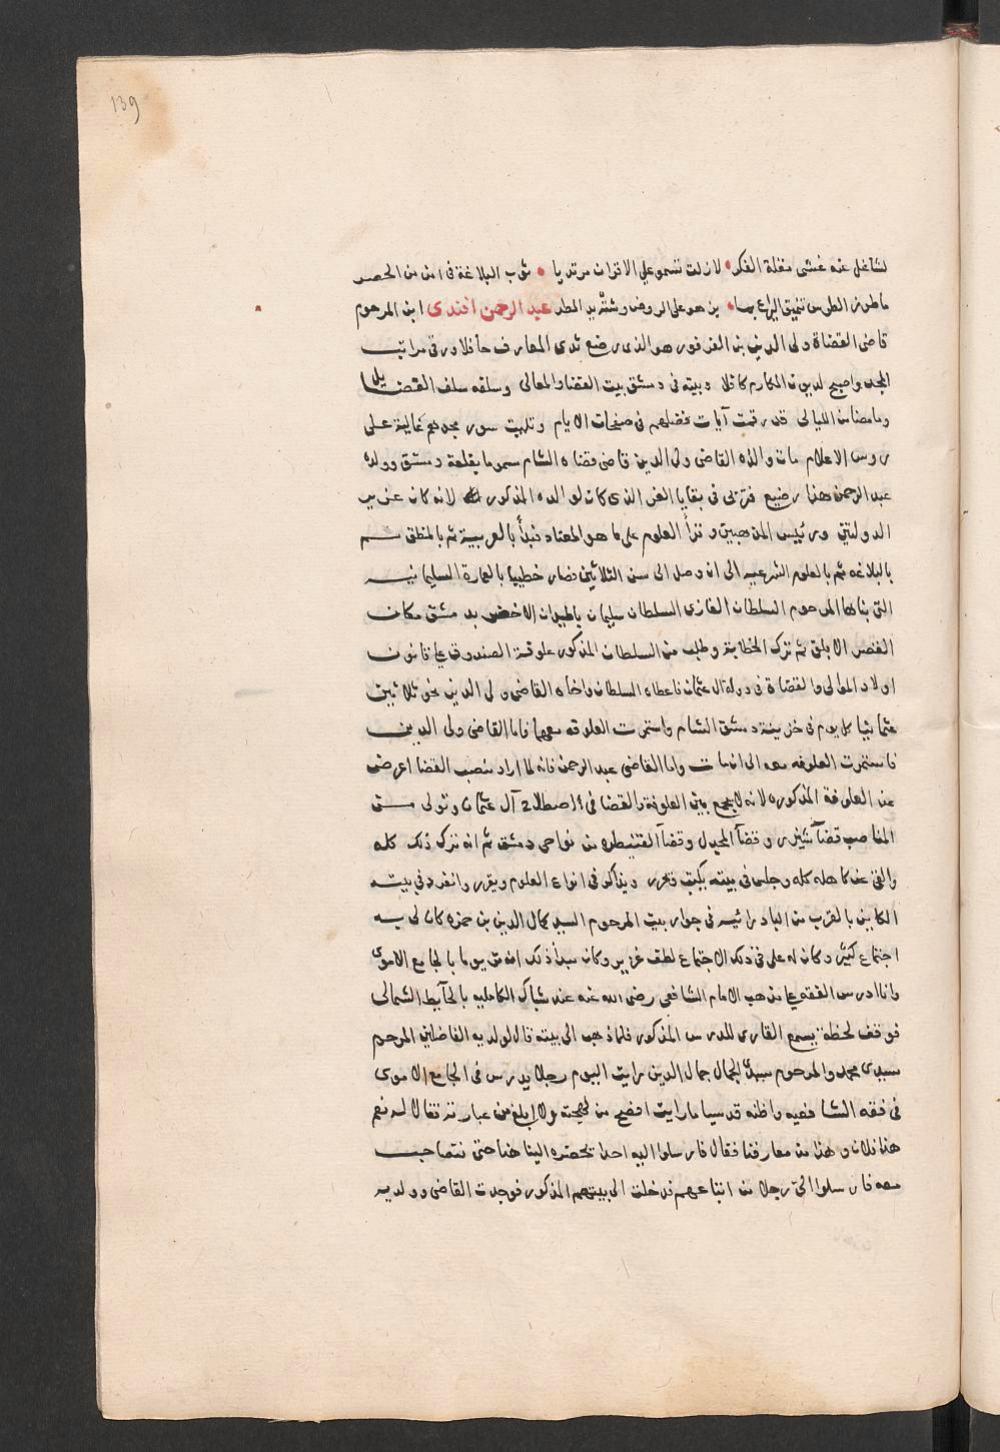 139
لشاغل عنه غشى مقلة الفكر لا زلت تسمو على الاقران مرتديا ثوب البلاغة فى امن من الحصر
ما طرز الطرس تنميق اليراع بها زهو على الروض وشته يد المطر عبد الرحمن افندى ابن المرحوم
قاضى القضاة ولى الدين بن الفرفور هو الذى رضع ثدى المعارف حافلا ورقى مراتب
المجد واصبح لديون المكارم كافلا وبيته فى دمشق بيت القضا والمعالى وسلفه سلف الفضايل
وما مضا من الليالى قد رقمت آيات فضلهم فى صفحات الايام وتليت سور مجدهم عالية على
روس الاعلام مات والده القاضى ولى الدين قاضى قضاة الشام مسموما بقلعة دمشق وولده
عبد الرحمن هذا رضيع فتربى فى بقايا العز الذى كان لوالده المذكور لانه كان عزيز
الدولتين ورئيس المذهبين وقرأ العلوم على ما هو المعتاد فبدأ بالعربية ثم بالمنطق ثم
بالبلاغه ثم بالعلوم الشرعيه الى ان وصل الى سن الثلاثين فصار خطيبا بالعمارة السليمانيه
التى بناها المرحوم السلطان الغازى السلطان سليمان بالميدان الاخضر بدمشق مكان
القصر الابلق ثم ترك الخطابة وطلب من السلطان المذكور علوفة الصندوق على قانون
اولاد الموالى والقضاة فى دولة ال عثمان فاعطاه السلطان واخاه القاضى ولى الدين نحو ثلاثين
عثمانيا كل يوم فى خزينة دمشق الشام واستمرت العلوفه معهما فاما القاضى ولى الدين
فاستمرت العلوفه معه الى ان مات واما القاضى عبد الرحمن فانه لما اراد منصب القضا اعرض
عن العلوفة المذكوره لانه لا يجمع بين العلوفة والقضا فى اصطلاح آل عثمان وتولى من
المناصب قضآ شيزر وقضآ المجدل وقضآ القنيطره من نواحى دمشق ثم انه ترك ذلك كله
والقى عن كاهله كله وجلس فى بيته يكتب ويحرر ويذاكر فى انواع العلوم ويقرر وانفرد فى بيته
الكاين بالقرب من البادرائيه فى جوار بيت المرحوم السيد كمال الدين بن حمزه كان لى به
اجتماع كثير وكان له على فى ذلك الاجتماع لطف غزير وكان مبدأ ذلك انه مر يوما بالجامع الاموى
وانا ادرس الفقه على مذهب الامام الشافعى رضى الله عنه عند شباك الكامليه بالحآيط الشمالى
فوقف لحظة يسمع القارى للدرس المذكور فلما ذهب الى بيته قال لولديه الفاضلين المرحوم
سيدى محمد والمرحوم سيدى الجمال جمال الدين رايت اليوم رجلا يدرس فى الجامع الاموى
فى فقه الشافعيه واظنه قدسيا ما رايت افصح من لهجته ولا ابلغ من عبارته فقالا له نعم
هذا فلان وهذا من معارفنا فقال فارسلوا اليه احدا يحضره الينا هنا حتى نتصاحب
معه فارسلوا الىّ رجلا من اتباعهم فدخلت الى بيتهم المذكور فوجدت القاضى وولديه